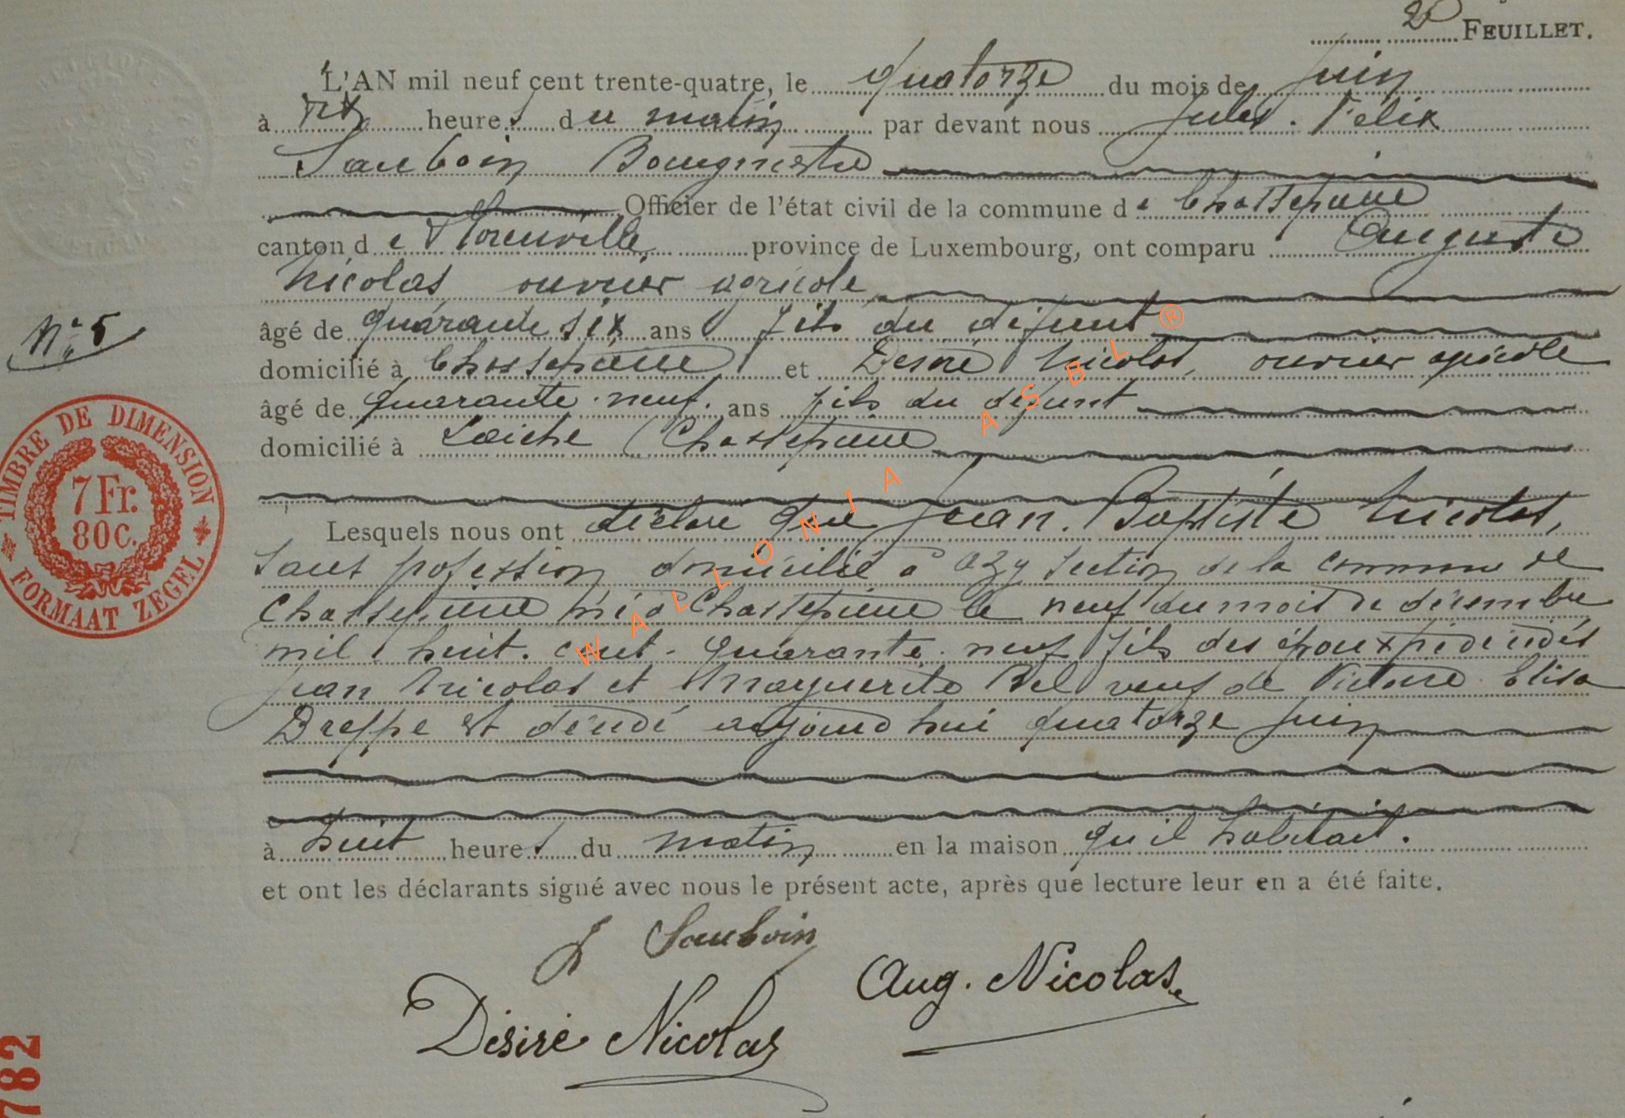 2e FEUILLET.
L'AN mil neuf cent trente-quatre, le quatorze du mois de juin
à dix heures du matin par devant nous Jules. Félix
Sauboin Bourgmestre
Officier de l'état civil de la commune de Chassepierre
canton de Florenville province de Luxembourg, ont comparu Auguste
Nicolas ouvrier agricole
âgé de quarante six ans fils du défunt
domicilié à Chassepierre et Désiré Nicolas, ouvrier agricole
âgé de quarante-neuf. ans fils du défunt
domicilié à Laiche (Chassepierre
Lesquels nous ont déclaré que Jean. Baptiste Nicolas,
sans profession domicilié à Azy section de la commune de
Chassepierre né à Chassepierre le neuf du mois de décembre
mil huit. cent. quarante. neuf fils des époux décédés
Jean Nicolas et Marguerite veuf de Victoire Elisa
est décédé aujourd'hui quatorze juin
à huit heures du matin en la maison qu'il habitait.
et ont les déclarants signé avec nous le présent acte, après que lecture leur en a été faite.
J Sauboin
Aug. Nicolas
Désiré Nicolas
N° 5
TIMBRE DE DIMENSION
7 Fr.
80C.
FORMAAT ZEGEL
782
WALLONIA ASBL ®